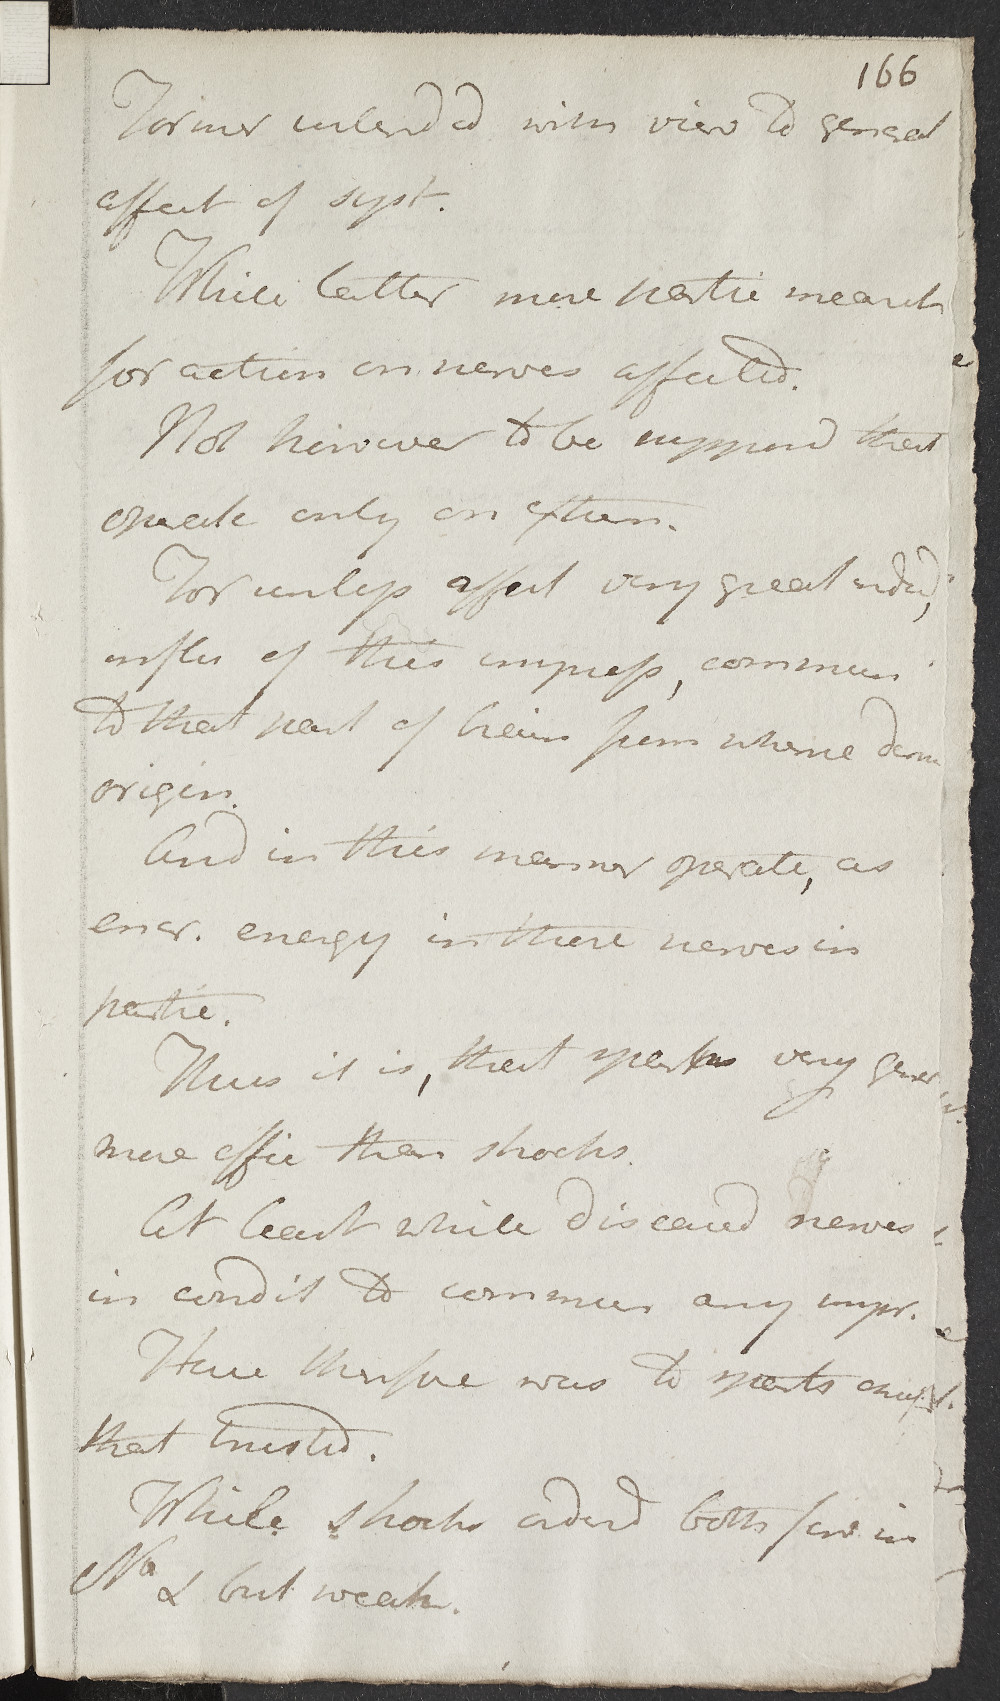 166
Former intended with view to general
affect of syst.
While latter more partic meant
for action on nerves affected.
Not however to be supposed that
operate only on them.
For unless affect very great indeed,
influ of this impress, commun
to that part of brain from whence deriv
origin.
And in this manner operate, as
encr. energy in these nerves in
partic.
Thus it is, that sparks very gener
more effic than shocks.
At least while diseased nerves
in condit to commun any impr.
Here therefore was to sparks
that trusted.
While shocks ordered both few in
No & but weak.